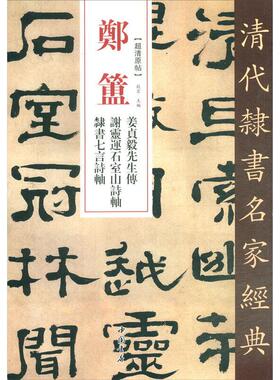 清代隸書名家經典
【超清原帖】
鄭簠
姜貞毅先生傳
謝靈運石室山詩軸
隸書七言詩軸
石室冠林
中國書店